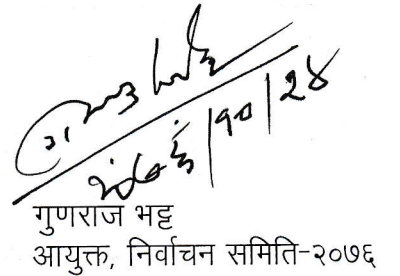 २०७६/१०/२४
गुणराज भट्ट
आयुक्त, निर्वाचन समिति-२०७६